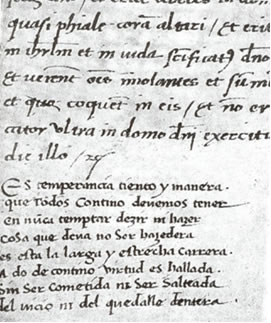 quasi phiale corā altari / et erit
in ihrlm et in iuda scificatū dno
et venient oēs imolantes et sumē
et quoq coquet in eis / et nō er
cator ultra in domo dni exerciti
die illo /
Es temperancia tiento y manera.
que todos contino devemos tener
en nūca temptar dezir ni hazer
cosa que deva no ser hazedera
es esta la larga y estrecha carrera.
a do de contino virtud es hallada.
sin ser cometida ni ser salteada
del vicio ni del quedalle dentera.